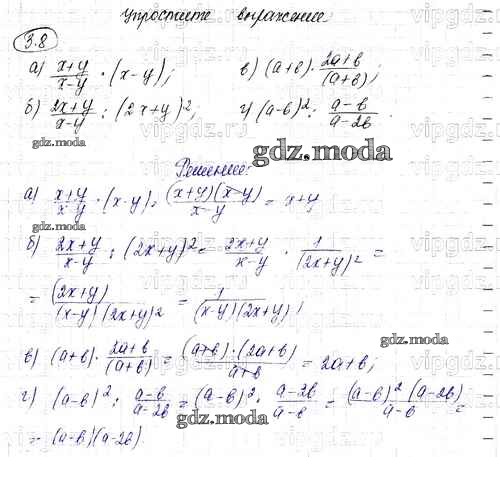 Упростите выражение
3.8
а) (x+y)/(x-y) · (x-y); в) (a+b) · (2a+b)/(a+b);
б) (2x+y)/(x-y) : (2x+y)²; г) (a-b)² : (a-b)/(a-2b).
gdz.moda
gdz.moda
Решение:
gdz.moda
а) (x+y)/(x-y) · (x-y) = (x+y)(x-y)/(x-y) = x+y;
б) (2x+y)/(x-y) : (2x+y)² = (2x+y)/(x-y) · 1/(2x+y)² =
= (2x+y)/((x-y)(2x+y)²) = 1/((x-y)(2x+y));
gdz.moda
в) (a+b) · (2a+b)/(a+b) = (a+b)·(2a+b)/(a+b) = 2a+b;
г) (a-b)² : (a-b)/(a-2b) = (a-b)² · (a-2b)/(a-b) = (a-b)²(a-2b)/(a-b) =
gdz.moda
= (a-b)(a-2b).